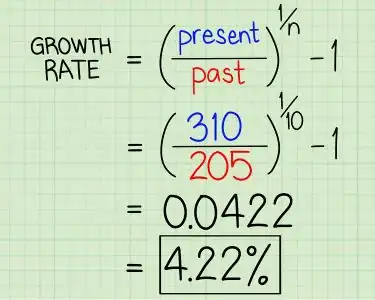 GROWTH RATE = (present/past)^1/n - 1
= (310/205)^1/10 - 1
= 0.0422
= 4.22%